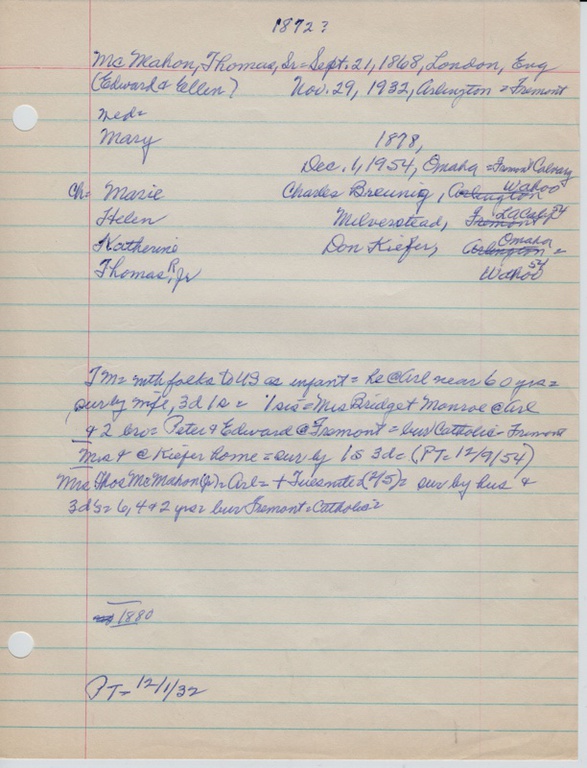 1872?
McMahon, Thomas, Sr = Sept. 21, 1868, London, Eng
(Edward & Ellen) Nov. 29, 1932, Arlington = Fremont
Wed =
Mary 1878,
Dec. 1, 1954, Omaha = Fremont Calvary
Ch = Marie Charles Breunig, Arlington Wahoo
Helen Milverstead, Fremont La Calif 54
Katherine Don Kiefer, Arlington Omaha =
Thomas R, Jr Wahoo 54
TM = with folks to US as infant = he @ Arl near 60 yrs =
sur by wife, 3d 1s = 1 sis = Mrs Bridget Monroe @ Arl
& 2 bro = Peter & Edward @ Fremont = bur Catholic = Fremont
Mrs + @ Kiefer home = sur by 1s 3d = (PT = 12/9/54)
Mrs Thos McMahon (Jr) = Arl = + Tues nite (2/5) = sur by hus &
3 d's = 6, 4 & 2 yrs = bur Fremont = Catholic =
1880
PT = 12/1/32